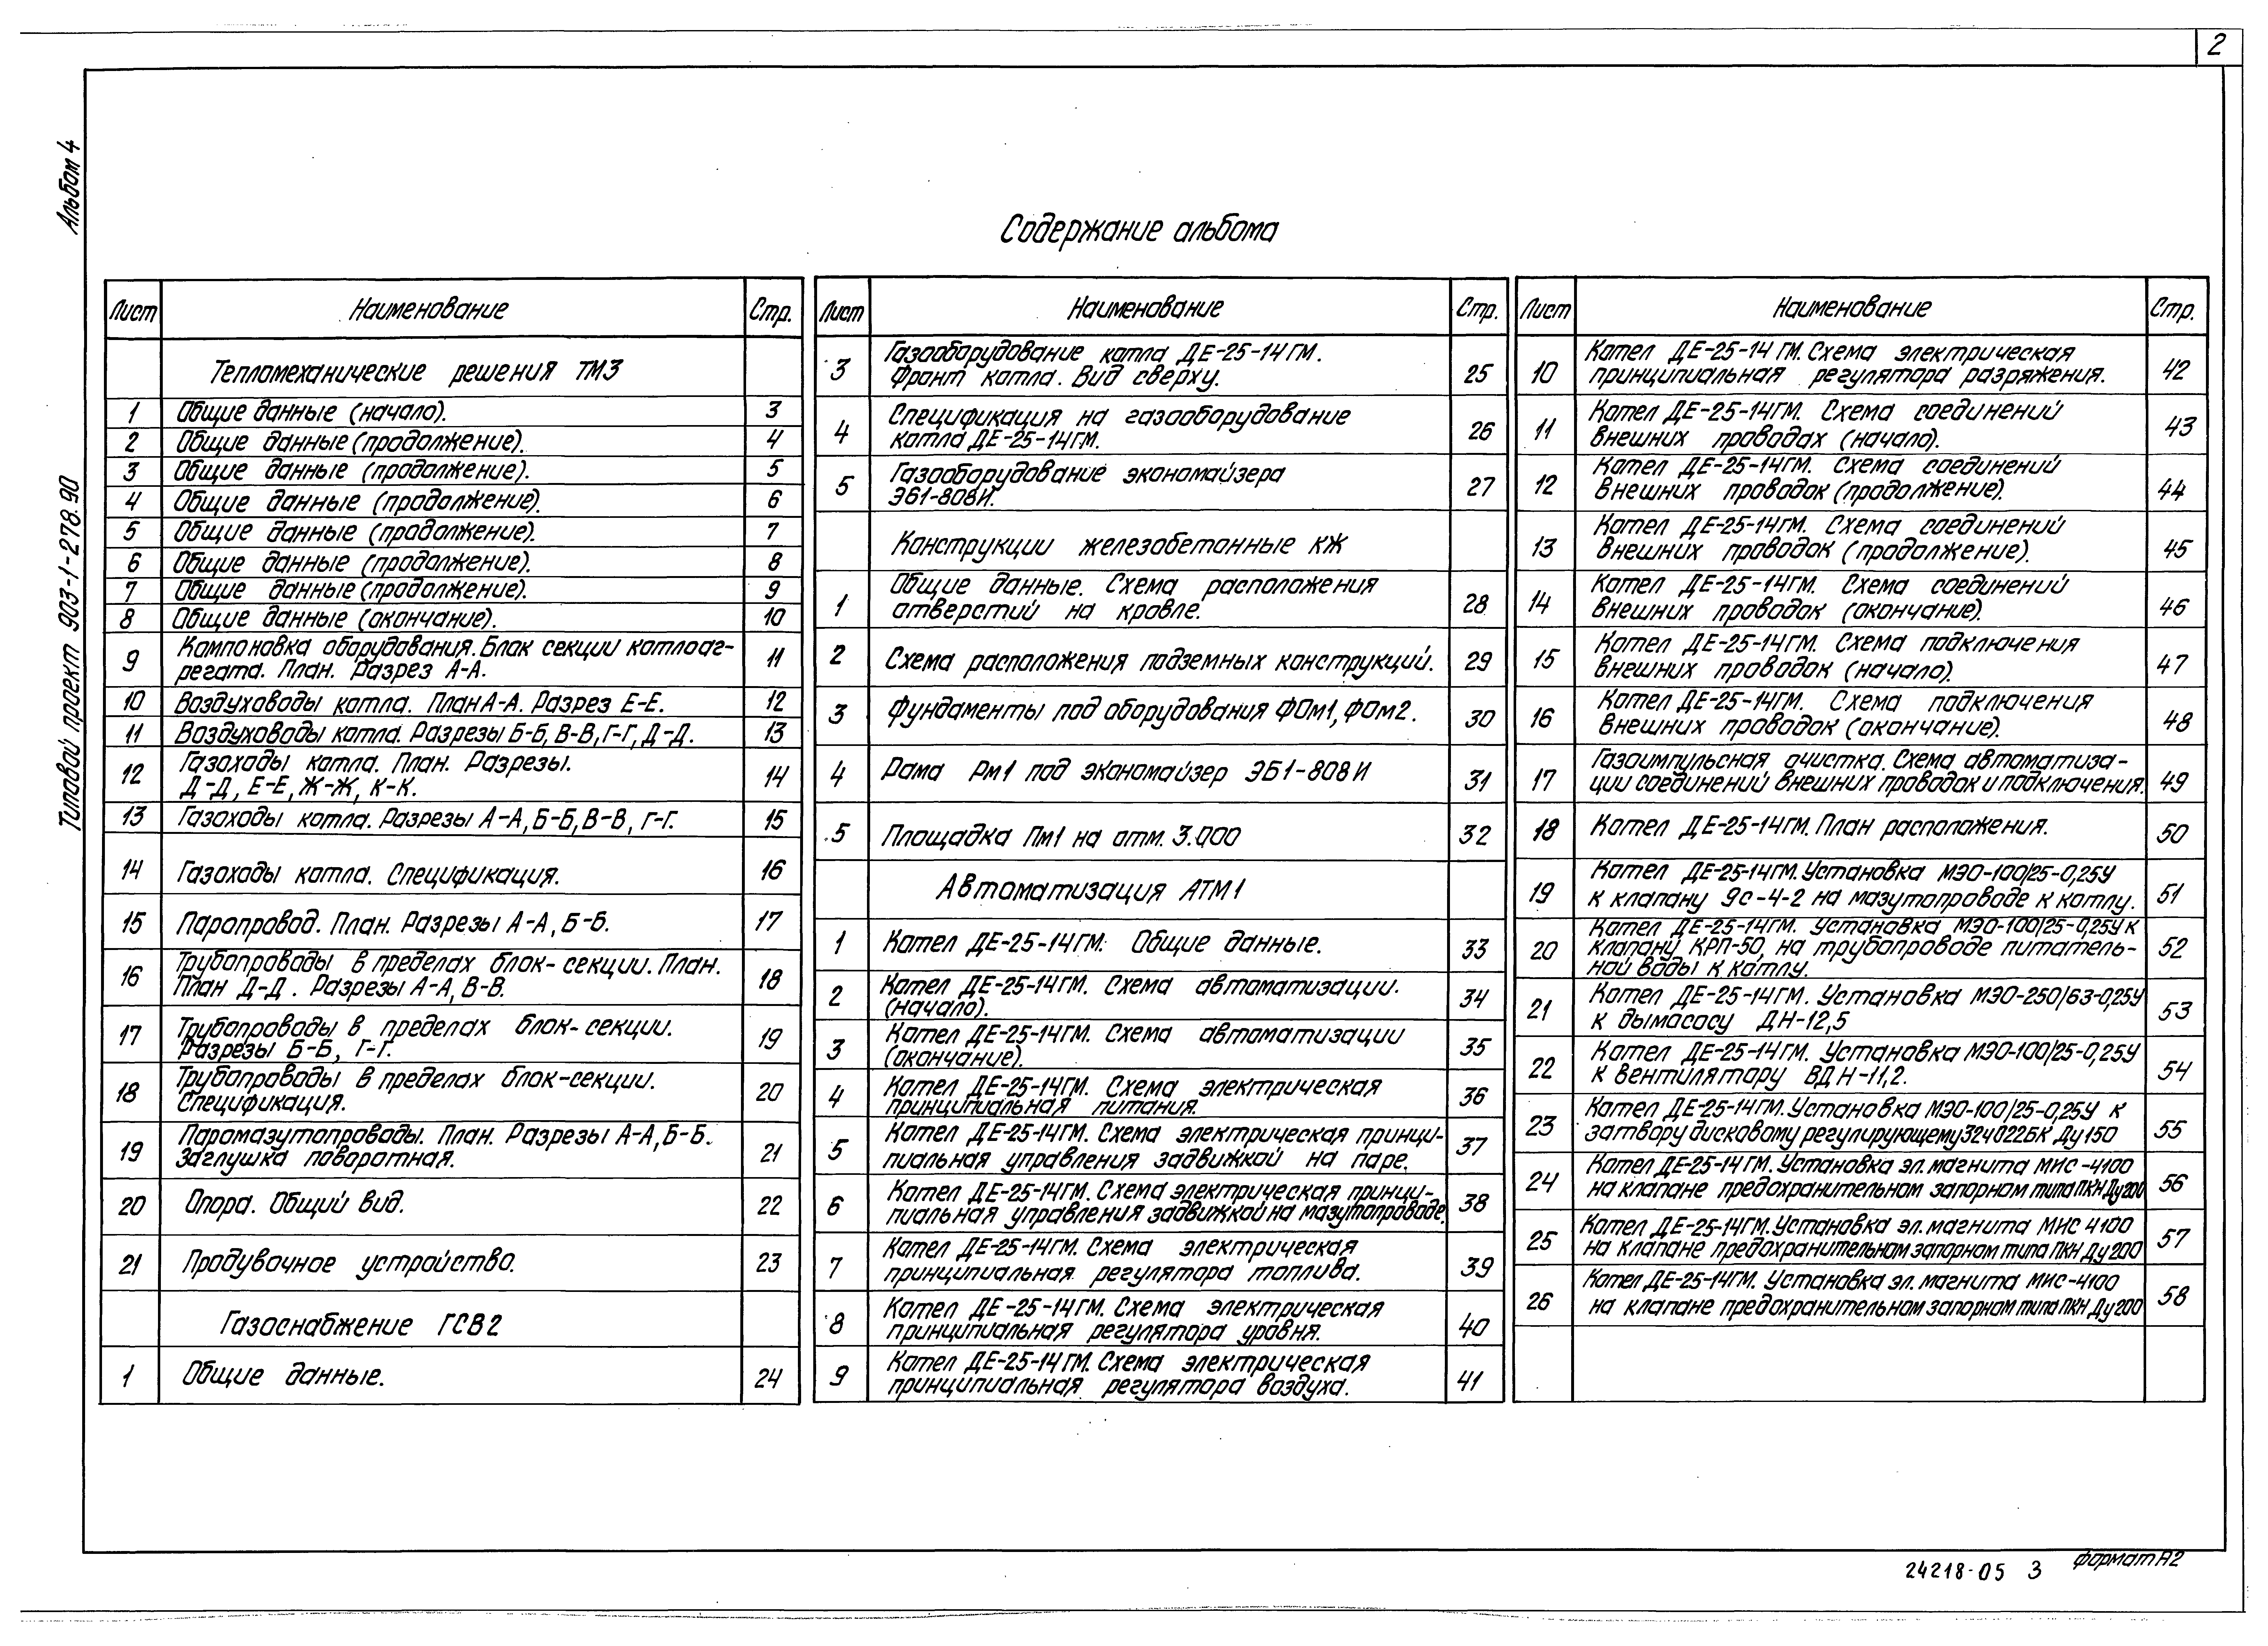 2
Альбом 4
Типовой проект 903-1-278.90
Содержание альбома
Лист Наименование Стр.
Тепломеханические решения ТМ3
1 Общие данные (начало). 3
2 Общие данные (продолжение). 4
3 Общие данные (продолжение). 5
4 Общие данные (продолжение). 6
5 Общие данные (продолжение). 7
6 Общие данные (продолжение). 8
7 Общие данные (продолжение). 9
8 Общие данные (окончание). 10
9 Компоновка оборудования. Блок секции котлоаг- 11
регата. План. Разрез А-А.
10 Воздуховоды котла. План А-А. Разрез Е-Е. 12
11 Воздуховоды котла. Разрезы Б-Б, В-В, Г-Г, Д-Д. 13
12 Газоходы котла. План. Разрезы. 14
Д-Д, Е-Е, Ж-Ж, К-К.
13 Газоходы котла. Разрезы А-А, Б-Б, В-В, Г-Г. 15
14 Газоходы котла. Спецификация. 16
15 Паропровод. План. Разрезы А-А, Б-Б. 17
16 Трубопроводы в пределах блок-секции. План. 18
План Д-Д. Разрезы А-А, В-В.
17 Трубопроводы в пределах блок-секции. 19
Разрезы Б-Б, Г-Г.
18 Трубопроводы в пределах блок-секции. 20
Спецификация.
19 Паромазутопроводы. План. Разрезы А-А, Б-Б. 21
Заглушка поворотная.
20 Опора. Общий вид. 22
21 Продувочное устройство. 23
Газоснабжение ГСВ2
1 Общие данные. 24
Лист Наименование Стр.
3 Газооборудование котла ДЕ-25-14ГМ. 25
Фронт котла. Вид сверху.
4 Спецификация на газооборудование 26
котла ДЕ-25-14ГМ.
5 Газооборудование экономайзера 27
ЭБ1-808И.
Конструкции железобетонные КЖ
1 Общие данные. Схема расположения 28
отверстий на кровле.
2 Схема расположения подземных конструкций. 29
3 Фундаменты под оборудования ФОм1, ФОм2. 30
4 Рама Рм1 под экономайзер ЭБ1-808И 31
5 Площадка Пм1 на отм. 3.000 32
Автоматизация АТМ1
1 Котел ДЕ-25-14ГМ. Общие данные. 33
2 Котел ДЕ-25-14ГМ. Схема автоматизации. 34
(начало).
3 Котел ДЕ-25-14ГМ. Схема автоматизации 35
(окончание).
4 Котел ДЕ-25-14ГМ. Схема электрическая 36
принципиальная питания.
5 Котел ДЕ-25-14ГМ. Схема электрическая принци- 37
пиальная управления задвижкой на паре.
6 Котел ДЕ-25-14ГМ. Схема электрическая принци- 38
пиальная управления задвижкой на мазутопроводе.
7 Котел ДЕ-25-14ГМ. Схема электрическая 39
принципиальная регулятора топлива.
8 Котел ДЕ-25-14ГМ. Схема электрическая 40
принципиальная регулятора уровня.
9 Котел ДЕ-25-14ГМ. Схема электрическая 41
принципиальная регулятора воздуха.
Лист Наименование Стр.
10 Котел ДЕ-25-14ГМ. Схема электрическая 42
принципиальная регулятора разряжения.
11 Котел ДЕ-25-14ГМ. Схема соединений 43
внешних проводах (начало).
12 Котел ДЕ-25-14ГМ. Схема соединений 44
внешних проводок (продолжение).
13 Котел ДЕ-25-14ГМ. Схема соединений 45
внешних проводок (продолжение).
14 Котел ДЕ-25-14ГМ. Схема соединений 46
внешних проводок (окончание).
15 Котел ДЕ-25-14ГМ. Схема подключения 47
внешних проводок (начало).
16 Котел ДЕ-25-14ГМ. Схема подключения 48
внешних проводок (окончание).
17 Газоимпульсная очистка. Схема автоматиза- 49
ции соединений внешних проводок и подключения.
18 Котел ДЕ-25-14ГМ. План расположения. 50
19 Котел ДЕ-25-14ГМ. Установка МЭО-100/25-0,25У 51
к клапану 9с-4-2 на мазутопроводе к котлу.
20 Котел ДЕ-25-14ГМ. Установка МЭО-100/25-0,25У к 52
клапану КРП-50, на трубопроводе питатель-
ной воды к котлу.
21 Котел ДЕ-25-14ГМ. Установка МЭО-250/63-0,25У 53
к дымасосу ДН-12,5
22 Котел ДЕ-25-14ГМ. Установка МЭО-100/25-0,25У 54
к вентилятору ВДН-11,2.
23 Котел ДЕ-25-14ГМ. Установка МЭО-100/25-0,25У к 55
затвору дисковому регулирующему 32ч022БК Ду150
24 Котел ДЕ-25-14ГМ. Установка эл. магнита МИС-4100 56
на клапане предохранительном запорном типа ПКН Ду200
25 Котел ДЕ-25-14ГМ. Установка эл. магнита МИС 4100 57
на клапане предохранительном запорном типа ПКН Ду200
26 Котел ДЕ-25-14ГМ. Установка эл. магнита МИС-4100 58
на клапане предохранительном запорном типа ПКН Ду200
24218-05 3 формат А2